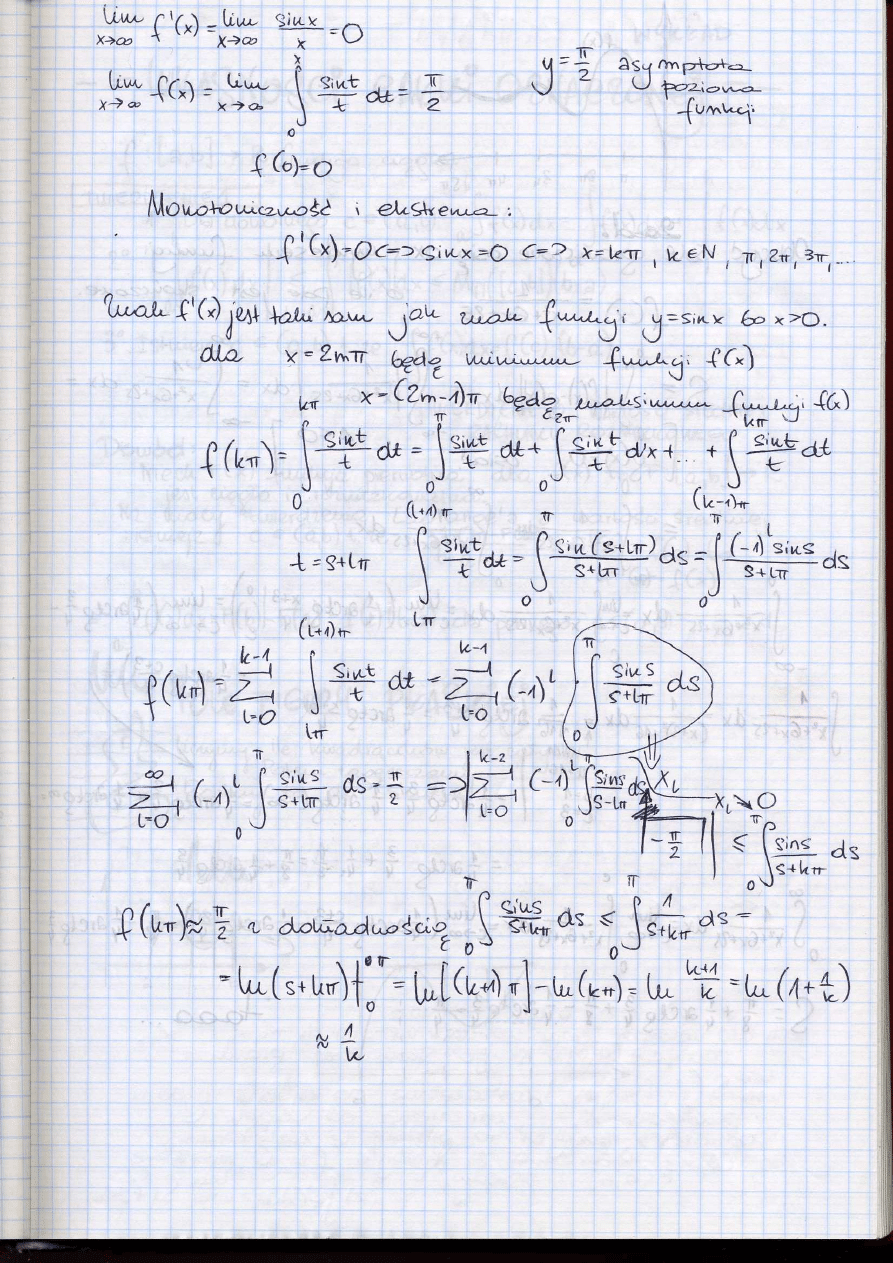 lim x→∞ f'(x) = lim x→∞ sinx/x = 0
lim x→∞ f(x) = lim x→∞ ∫₀ˣ sint/t dt = π/2    y = π/2 asymptota
pozioma
funkcji
f(0)=0
Monotoniczność i ekstrema:
f'(x)=0 <=> sinx=0 <=> x=kπ, k∈N, π, 2π, 3π, ...
Znak f'(x) jest taki sam jak znak funkcji y=sinx bo x>0.
dla x=2mπ będę minimum funkcji f(x)
x=(2m-1)π będę maksimum funkcji f(x)
f(kπ) = ∫₀^{kπ} sint/t dt = ∫₀^{π} sint/t dt + ∫₀^{2π} sint/t dx + ... + ∫_{(k-1)π}^{kπ} sint/t dt
t=s+lπ    ∫_{lπ}^{(l+1)π} sint/t dt = ∫₀^{π} sin(s+lπ)/(s+lπ) ds = ∫₀^{π} (-1)^l sins/(s+lπ) ds
f(kπ) = Σ_{l=0}^{k-1} ∫_{lπ}^{(l+1)π} sint/t dt = Σ_{l=0}^{k-1} (-1)^l · ∫₀^{π} sins/(s+lπ) ds
Σ_{l=0}^{∞} (-1)^l ∫₀^{π} sins/(s+lπ) ds = π/2 => | Σ_{l=0}^{k-2} (-1)^l ∫₀^{π} sins/(s-lπ) ds
x_l    x_l ↘ 0
- π/2 | ≤ ∫₀^{π} sins/(s+kπ) ds
f(kπ) ≈ π/2 z dokładnością ∫₀^{π} sins/(s+kπ) ds ≤ ∫₀^{π} 1/(s+kπ) ds =
= ln(s+kπ)|₀^{π} = ln[(k+1)π] - ln(kπ) = ln (k+1)/k = ln(1+1/k)
≈ 1/k